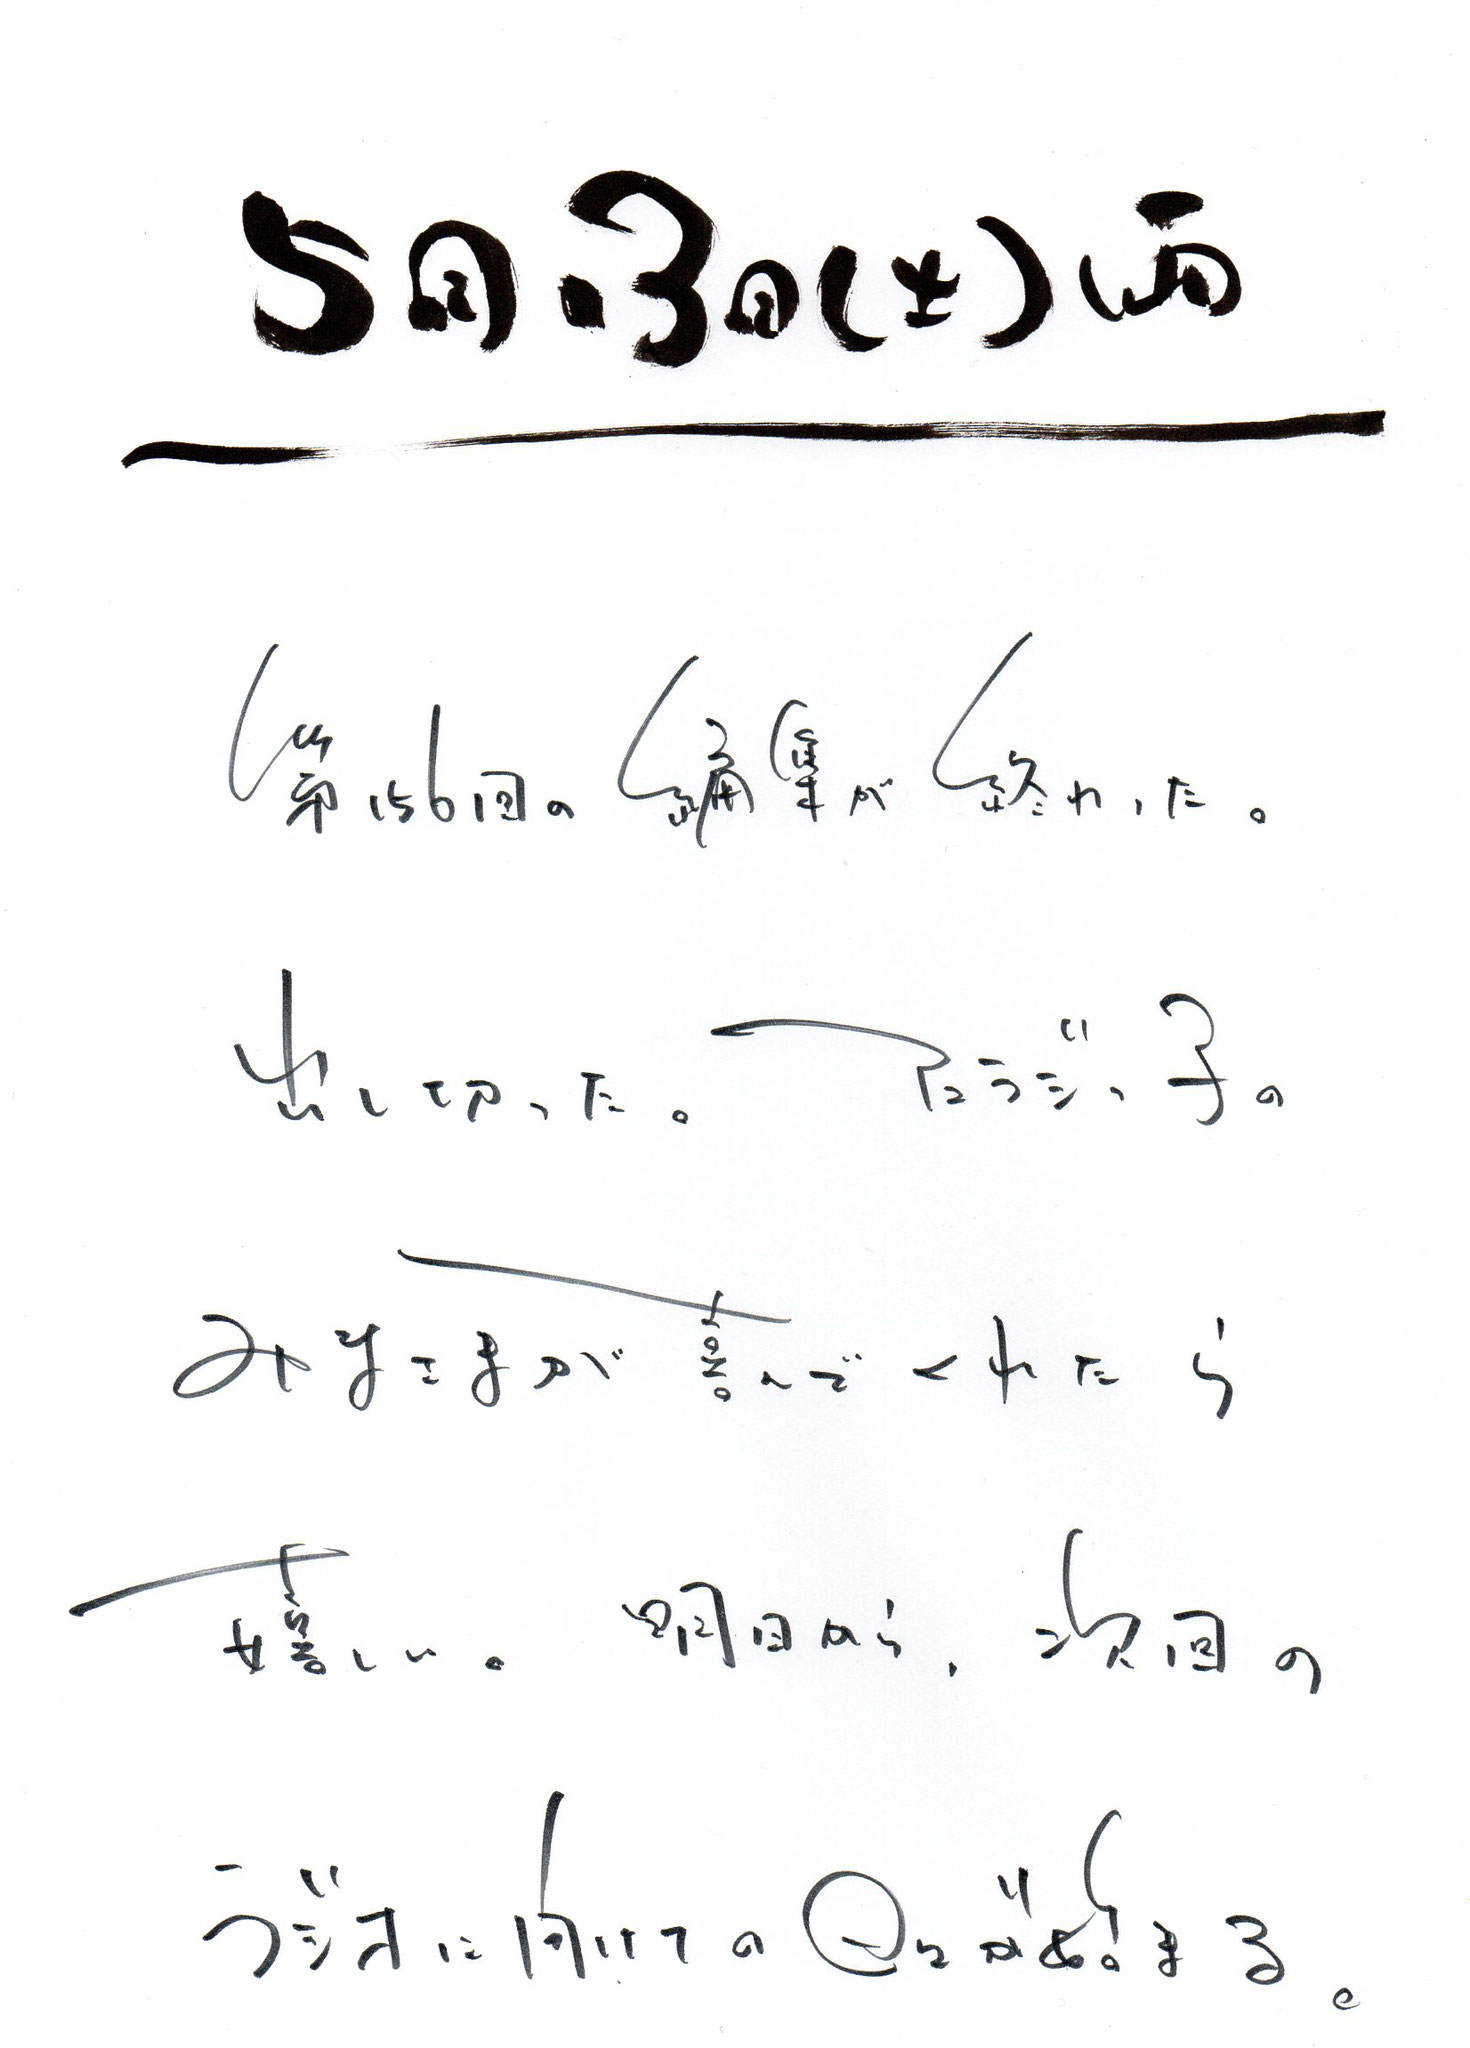 5月.3日(土)雨
第156回の編集が終わった。
出し切った。 ラジっ子の
みなさまが喜んでくれたら
嬉しい。 明日から、次回の
ラジオに向けての日々が始まる。